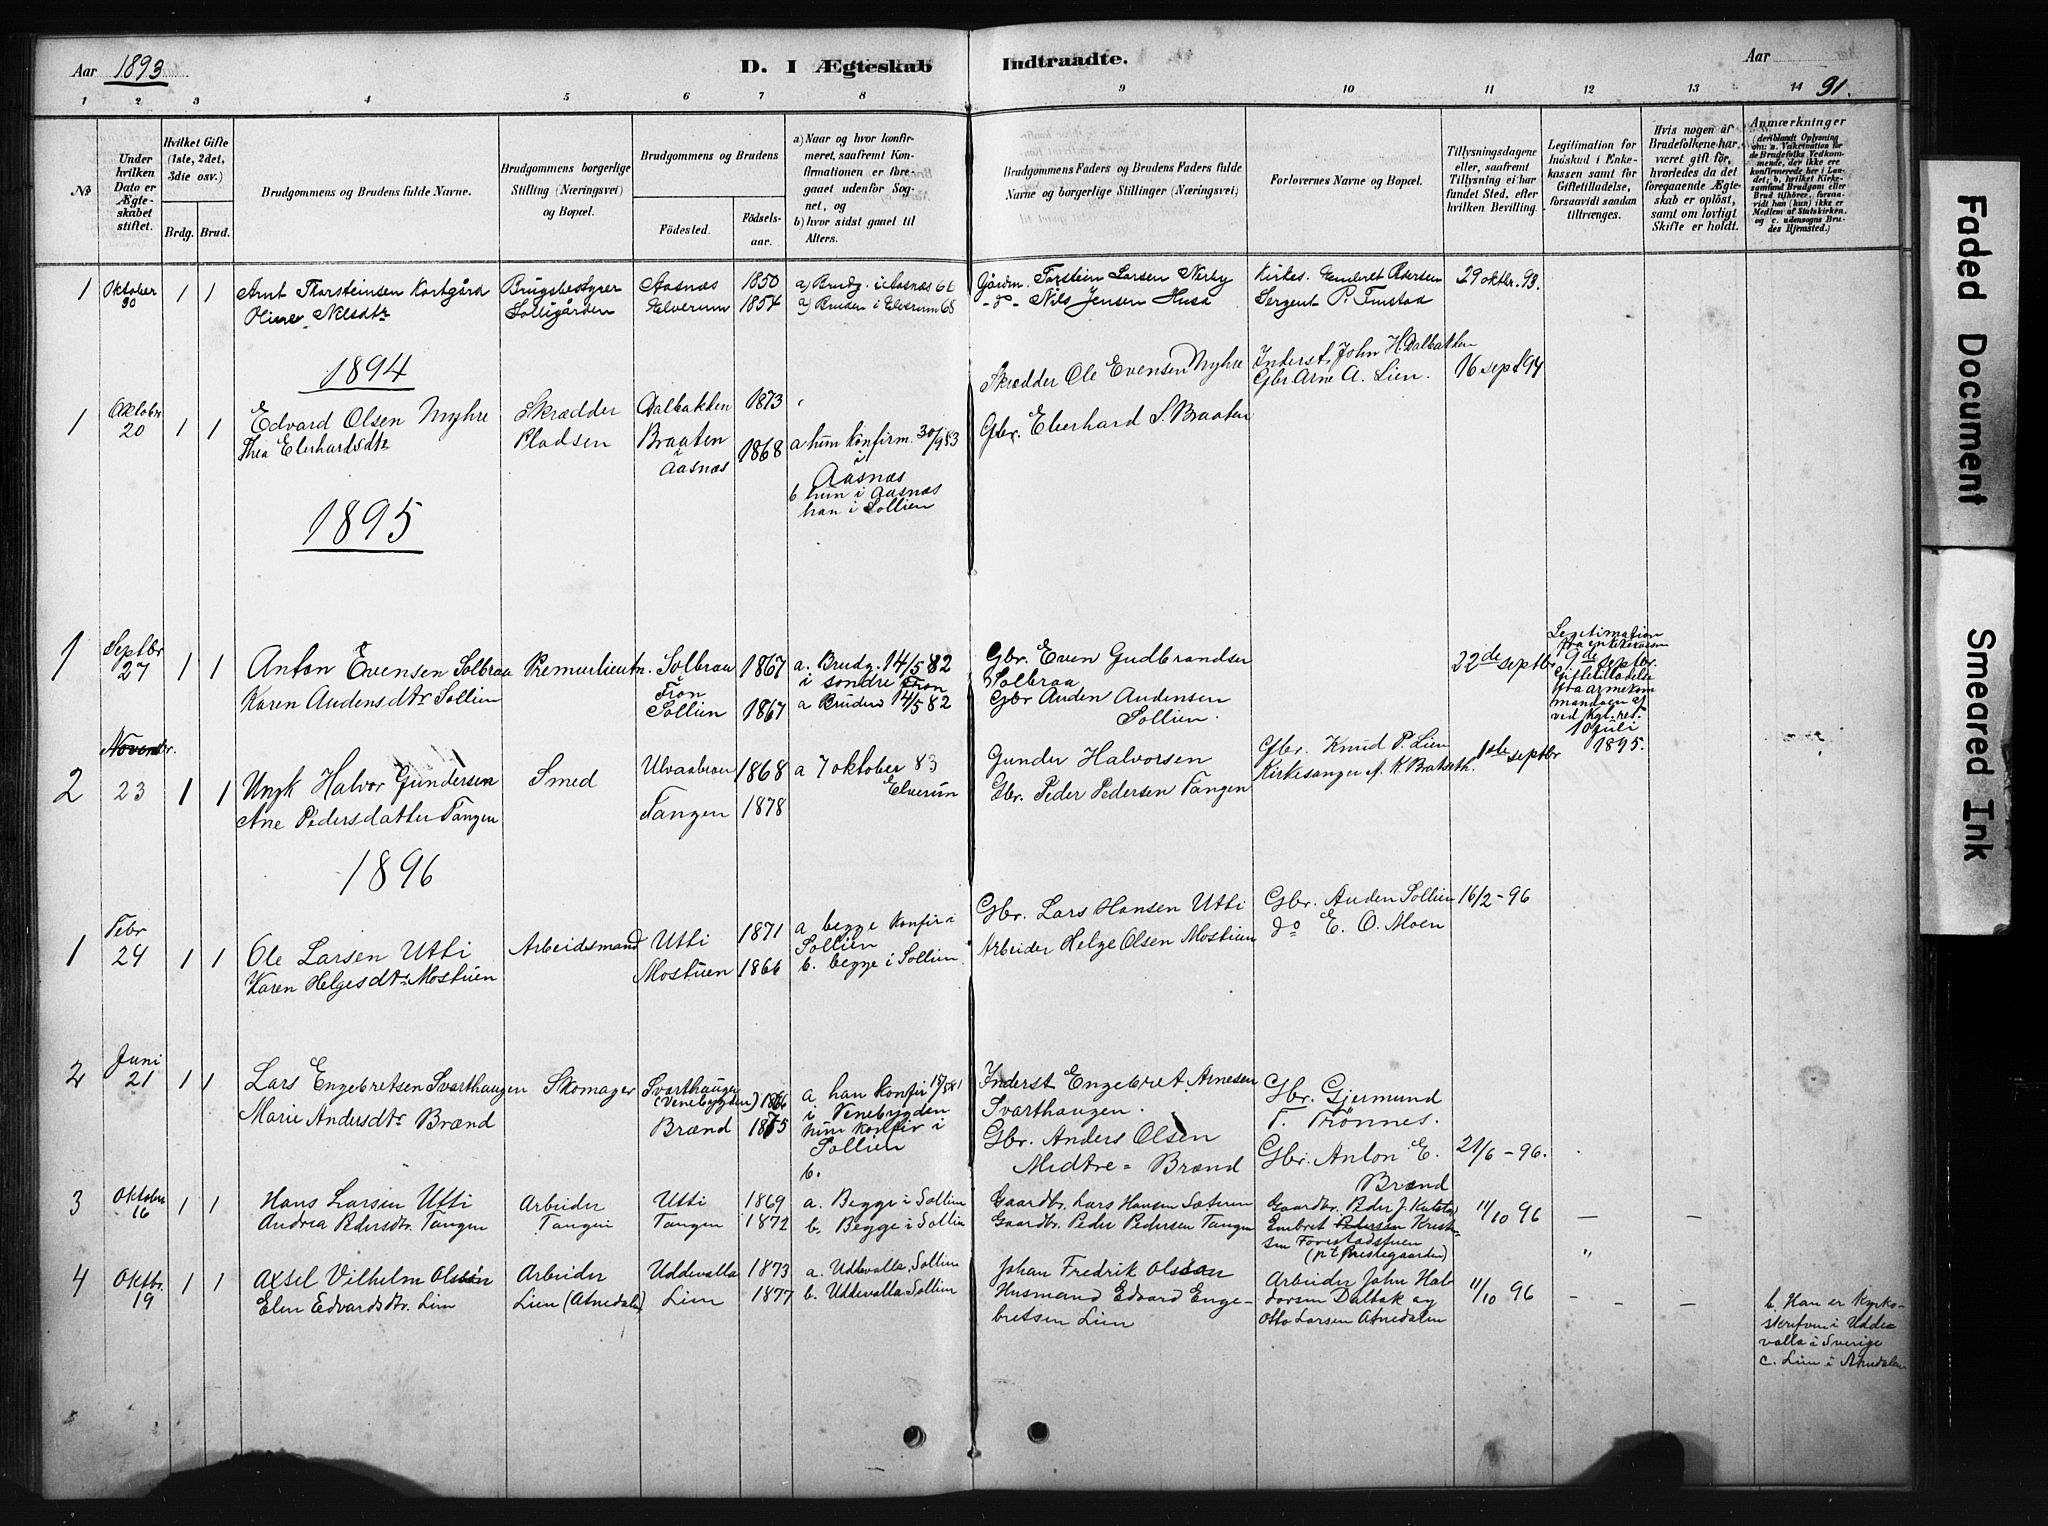 Aar 1893
D. I Ægteskab Indtraadte.
Aar
91.
1 2 3 4 5 6 7 8 9 10 11 12 13 14
№
Under hvilken Dato er Ægteskabet stiftet.
Hvilket Gifte (1ste, 2det, 3die osv.)
Brdg. Brud.
Brudgommens og Brudens fulde Navne.
Brudgommens borgerlige Stilling (Næringsvei) og Bopæl.
Brudgommens og Brudens
Fødested.
Fødselsaar.
a) Naar og hvor konfirmeret, saafremt Konfirmationen er foregaaet udenfor Sognet, og
b) hvor sidst gaaet til Alters.
Brudgommens Faders og Brudens Faders fulde Navne og borgerlige Stillinger (Næringsvei)
Forlovernes Navne og Bopæl.
Tillysningsdagene eller, saafremt Tillysning ei har fundet Sted, efter hvilken Bevilling.
Legitimation for Indskud i Enkekassen samt for Giftetilladelse, forsaavidt saadan tiltrænges.
Hvis nogen af Brudefolkene har været gift før, hvorledes da det foregaaende Ægteskab er opløst, samt om lovligt Skifte er holdt.
Anmærkninger
1 Oktober 30 1 1 Arnt Thorsteinsen Kortgård Brugsbestyrer Aasnæs 1850 a) Brudg. i Aasnæs 66 Gårdm. Torstein Larsen Nerby Kirkes. Embret Pedersen 29 oktbr. 93.
Oline Nilsdtr Solligården Elverum 1854 a) Bruden i Elverum 68 -do- Nils Jensen Husa Sergent P. Finstad
1894
1 Oktobr 20 1 1 Edvard Olsen Myhre Skrædder Dalbakken 1873 Skrædder Ole Evensen Myhre Inderst John H. Dalbakken 16 sept 94
Thea Eberhardsdtr Pladsen Braaten i Aasnæs 1868 a hun konfirm. 30/9 83 i Aasnæs Gbr. Eberhard S. Braaten Gbr Arne A. Lien.
b hun i Aasnæs
han i Sollien
1895
1 Septbr 27 1 1 Anton Evensen Solbraa Premierlieutn. Solbraa 1867 a. Brudg. 14/5 82 Gbr. Even Gudbrandsen Solbraa 22de septbr Legitimation fra enkekassen 9de septbr.
i søndre Fron Giftetilladelse fra armekommandoen af
Karen Audensdtr Sollien Sollien 1867 a Bruden 14/5 82 Gbr Auden Audensen Sollien. ved kgl. res. 10 juli 1895.
2 Novembr. 23 1 1 Ungk Halvor Gundersen Smed Ulvaabraa 1868 a 7 oktober 83 Elverum Gunder Halvorsen Gbr. Knud P. Lien 1ste septbr
Ane Pedersdatter Tangen Tangen 1878 Gbr. Peder Pedersen Tangen Kirkesanger A. K. Bratseth.
1896
1 Febr 24 1 1 Ole Larsen Utti Arbeidsmand Utti 1871 a begge konfir i Sollien Gbr. Lars Hansen Utti Gbr. Auden Sollien 16/2 - 96
Karen Helgesdtr Mostuen Mostuen 1866 b. begge i Sollien. Arbeider Helge Olsen Mostuen do E. O. Moen
2 Juni 21 1 1 Lars Engebretsen Svarthaugen Skomager Svarthaugen (Venebygden) 1866 a han konfir 19/5 81 i Venebygden Inderst Engebret Arnesen Svarthaugen. Gbr. Gjermund T. Trønnes.
Marie Andersdtr Brænd Brænd 1875 hun konfir i Sollien Gbr. Anders Olsen Midtre = Brænd Gbr. Anton E. Brænd 21/6 - 96.
b.
3 Oktober 16 1 1 Hans Larsen Utti Arbeider Utti 1869 a. Begge i Sollien Gaardbr. Lars Hansen Sæteren Gaardbr. Peder J. Kutstad 11/10 96 – –
Andrea Pedersdtr. Tangen Tangen Tangen 1872 b. Begge i Sollien Gaardbr. Peder Pedersen Tangen Embret Pedersen Kristensen (p.t. Prestegaarden)
4 Oktbr. 19 1 1 Axsel Vilhelm Olsson Arbeider Uddevalla 1873 a. Uddevalla. Sollien Johan Fredrik Olsson Arbeider John Haldorsen Dalbak og 11/10 96 – – –
Elen Edvardsdtr. Lien Lien (Atnedalen) Lien 1877 b. Uddevalla Sollien Husmand Edvard Engebretsen Lien Otto Larsen Atnedalen
b. Han er kyrkoskrefven i Uddevalla i Sverige
c. Lien i Atnedalen
Faded Document
Smeared Ink